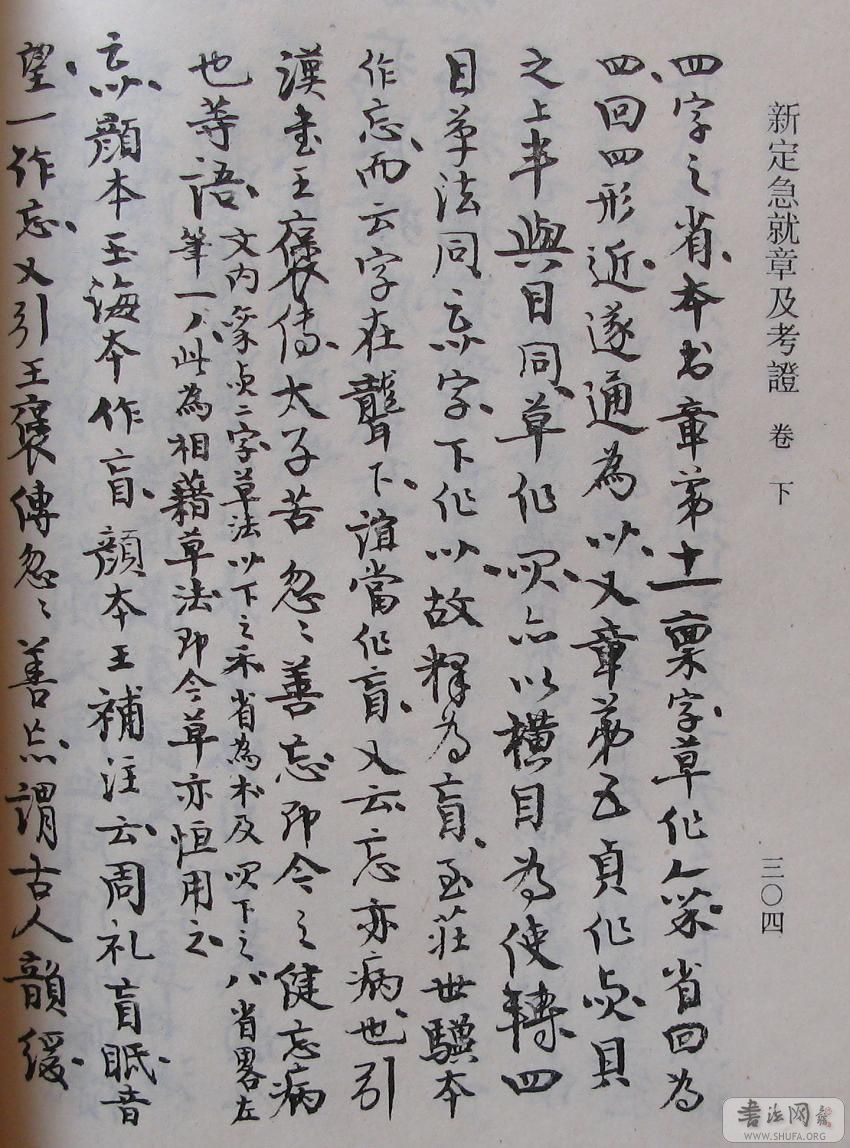 新定急就章及考證 卷下 三〇四
四字之省、本书章第十一稟字草作省回為
四、回四形近、遂通為以、又章第五貞作貝
之上半與目同、草作亦以橫目為使轉四
目草法同、字、下作以、故释為盲、至莊世驥本
作忘、而云字在聾下、誼當作盲、又云、忘亦病也、引
漢書王褒傳、太子苦忽〻善忘、即今之健忘病
也等語、
文内二字草法以下之禾省為木及下之八省畧左
筆一八、此為相藉草法即今草亦恒用之
顏本玉海本作盲、顏本王補注云、周礼盲眂音
望、一作忘、又引王褒傳忽〻善忘、謂古人韻緩、
書法网
WWW.SHUFA.ORG